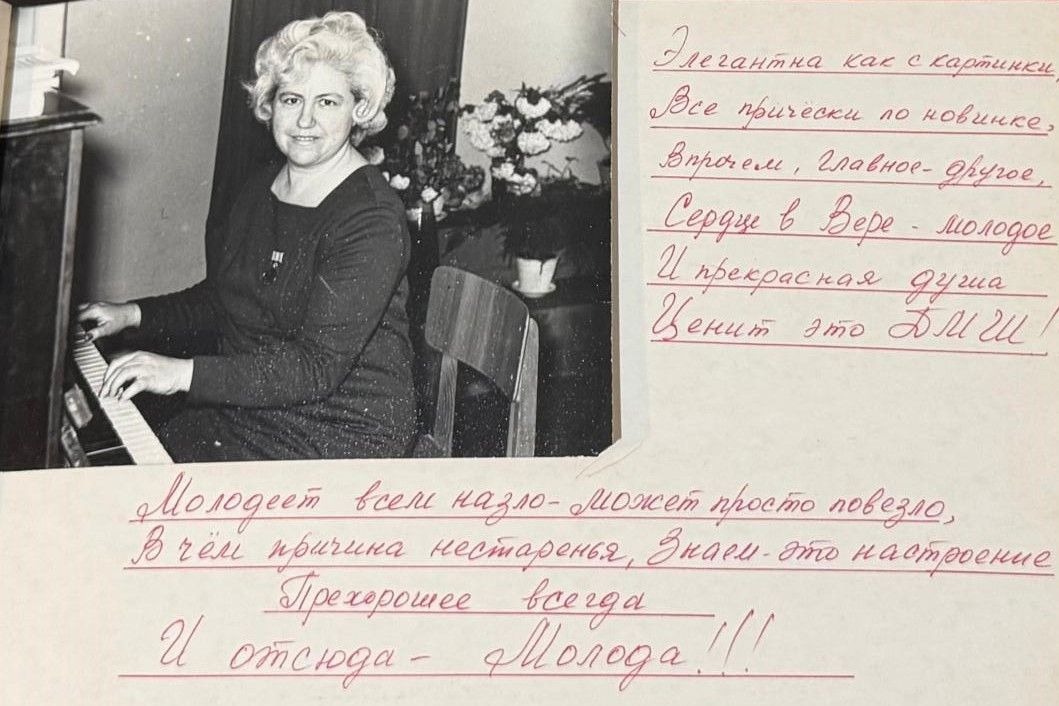 Элегантна как с картинки
Все причёски по новинке,
Впрочем, главное - другое,
Сердце в Вере - молодое
И прекрасная душа
Ценит это ДМШ!
Молодеет всем назло - может просто повезло,
В чём причина нестаренья, Знаем - это настроение
Прехорошее всегда
И отсюда - Молода!!!